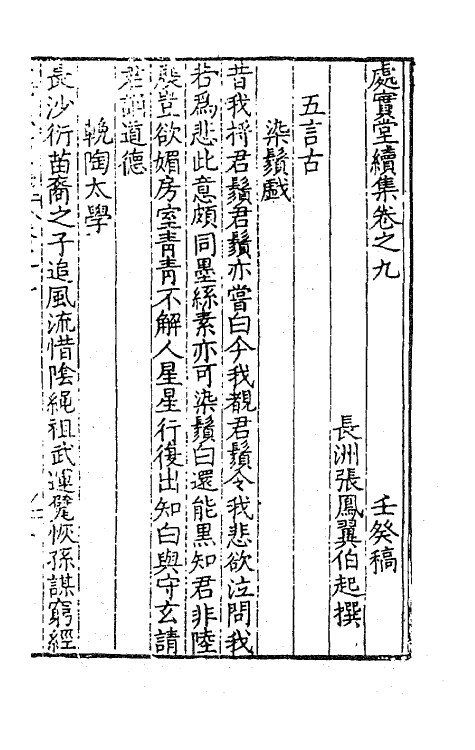 處實堂續集卷之九　壬癸稿
長洲張鳳翼伯起撰
五言古
染鬚戲
昔我捋君鬚君鬚亦嘗白今我覩君鬚令我悲欲泣問我
若爲悲此意頗同墨絲素亦可染鬚白還能黑知君非陸
展豈欲媚房室青青不解人星星行復出知白與守玄請
君譚道德
輓陶太學
長沙衍苗裔之子追風流惜陰繩祖武運甓恢孫謀窮經